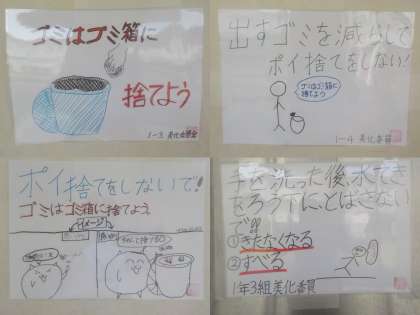 ゴミはゴミ箱に
捨てよう
出すゴミを減らして
ポイ捨てをしない!
ゴミはゴミ箱に
捨てよう
1-4 美化委員
ポイ捨てをしないで!
ゴミはゴミ箱に捨てよう
イメージ
手を洗った後、水てき
をろう下にとばさない
で!!
①きたなくなる
②すべる
1年3組美化委員